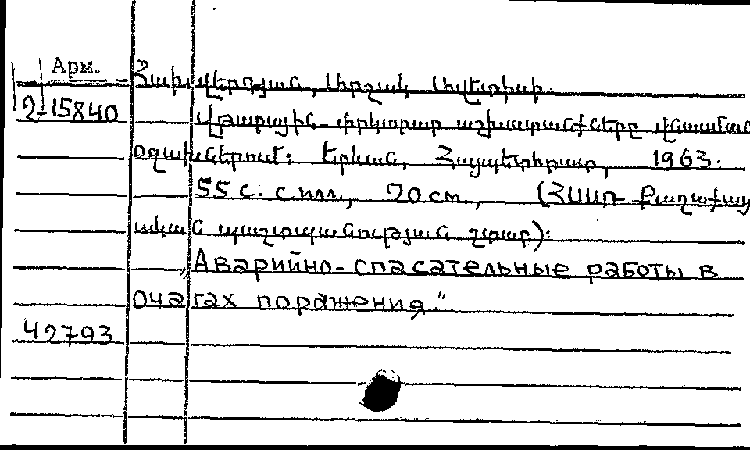 Арм.
Հախվերդյան, Արշակ Ավետիսի.
2-15840
Վթարային-փրկարար աշխատանքները վնասման
օջախներում: Երևան, Հայպետհրատ, 1963.
55 с. с илл., 20 см., (ՀՍՍՌ Քաղաքաց
ական պաշտպանության շտաբ):
„Аварийно-спасательные работы в
очагах поражения."
42793